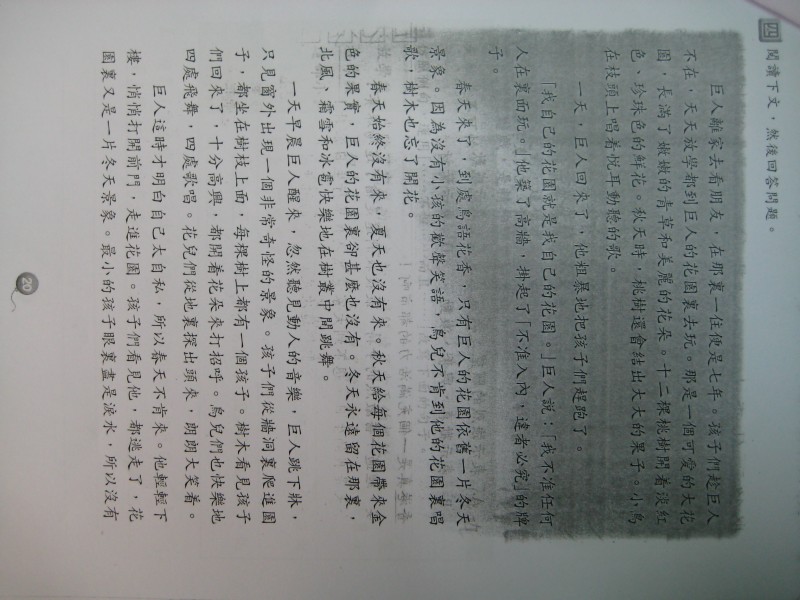 四 閱讀下文，然後回答問題。
巨人離家去看朋友，在那裏一住便是七年。孩子們趁巨人
不在，天天放學都到巨人的花園裏去玩。那是一個可愛的大花
園，長滿了嫩嫩的青草和美麗的花朵。十二棵桃樹開着淡紅
色、珍珠色的鮮花。秋天時，桃樹還會結出大大的果子。小鳥
在枝頭上唱着悅耳動聽的歌。
一天，巨人回來了，他粗暴地把孩子們趕跑了。
「我自己的花園就是我自己的花園。」巨人說：「我不准任何
人在裏面玩。」他築了高牆，掛起了「不准入內，違者必究」的牌
子。
春天來了，到處鳥語花香，只有巨人的花園依舊一片冬天
景象。因為沒有小孩的歡聲笑語，鳥兒不肯到他的花園裏唱
歌，樹木也忘了開花。
春天始終沒有來，夏天也沒有來。秋天給每個花園帶來金
色的果實，巨人的花園裏卻甚麼也沒有。冬天永遠留在那裏，
北風、霜雪和冰雹快樂地在樹叢中間跳舞。
一天早晨巨人醒來，忽然聽見動人的音樂，巨人跳下牀，
只見窗外出現一個非常奇怪的景象。孩子們從牆洞裏爬進園
子，都坐在樹枝上面，每棵樹上都有一個孩子。樹木看見孩子
們回來了，十分高興，都開着花朵來打招呼。鳥兒們也快樂地
四處飛舞，四處歌唱。花兒們從地裏探出頭來，朗朗大笑着。
巨人這時才明白自己太自私，所以春天不肯來。他輕輕下
樓，悄悄打開前門，走進花園。孩子們看見他，都逃走了，花
園裏又是一片冬天景象。最小的孩子眼裏盡是淚水，所以沒有
20